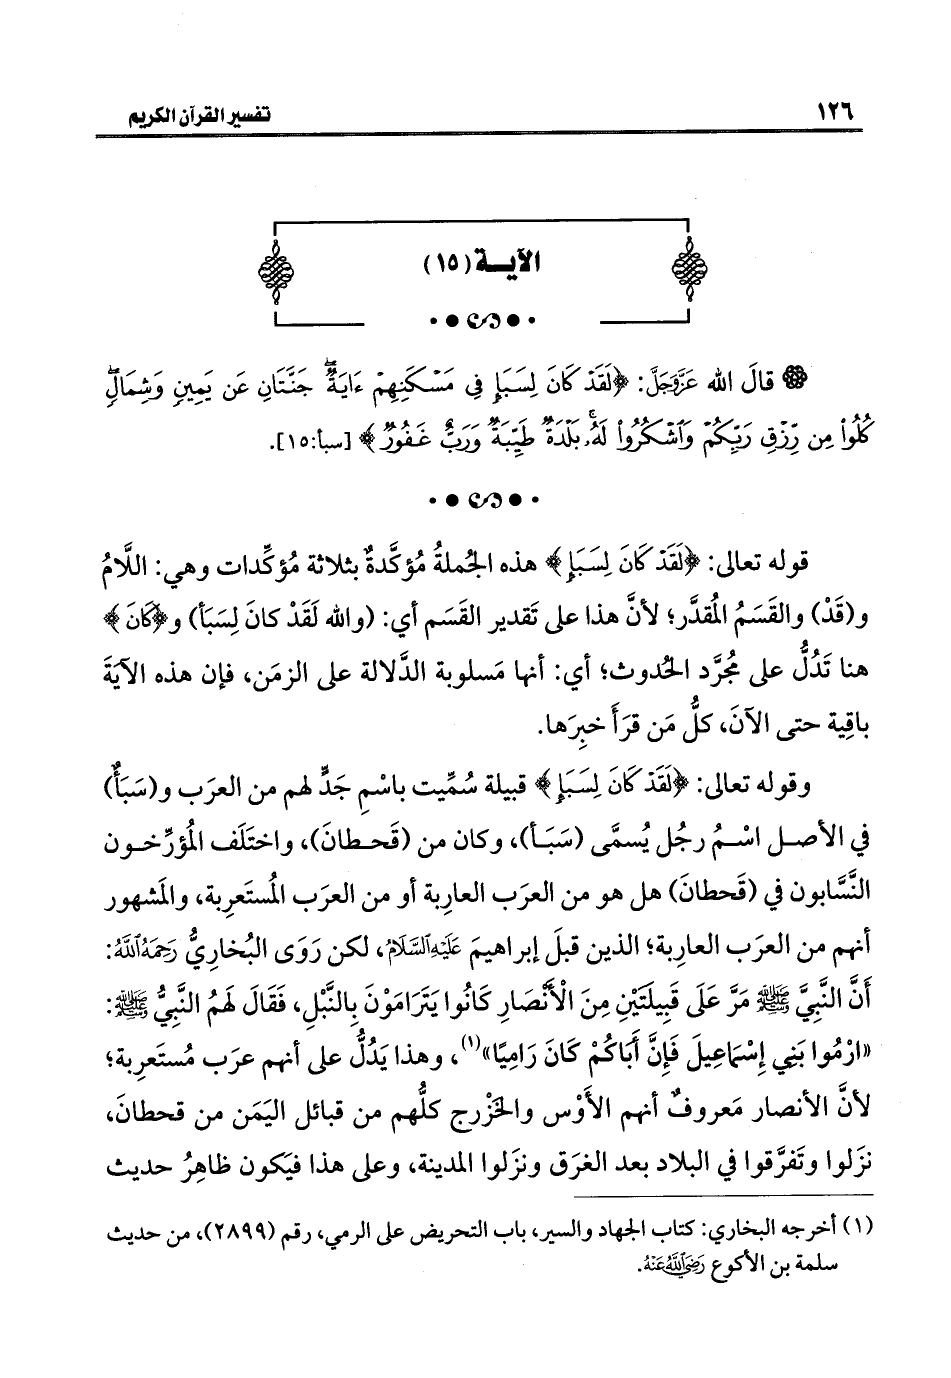 ١٢٦
تفسير القرآن الكريم
الآيـــة (١٥)
قالَ الله عَزَّوَجَلَّ: ﴿لَقَدْ كَانَ لِسَبَإٍ فِي مَسْكَنِهِمْ ءَايَةٌ ۖ جَنَّتَانِ عَن يَمِينٍ وَشِمَالٍ ۖ
كُلُوا۟ مِن رِّزْقِ رَبِّكُمْ وَٱشْكُرُوا۟ لَهُۥ ۚ بَلْدَةٌ طَيِّبَةٌ وَرَبٌّ غَفُورٌ﴾ [سبأ:١٥].
قوله تعالى: ﴿لَقَدْ كَانَ لِسَبَإٍ﴾ هذه الجُملةُ مُؤكَّدةٌ بثلاثة مُؤكِّدات وهي: اللَّامُ
و(قَدْ) والقَسَمُ المُقدَّر؛ لأنَّ هذا على تَقدير القَسَم أي: (والله لَقَدْ كانَ لِسَبَأ) و﴿كَانَ﴾
هنا تَدُلُّ على مُجرَّد الحُدوث؛ أي: أنها مَسلوبة الدَّلالة على الزمَن، فإن هذه الآيَةَ
باقِية حتى الآنَ، كلُّ مَن قرَأَ خبِرَها.
وقوله تعالى: ﴿لَقَدْ كَانَ لِسَبَإٍ﴾ قبيلة سُمِّيت باسْمِ جَدٍّ لهم من العرَب و(سَبَأٌ)
في الأصـل اسْـمُ رجُل يُسمَّى (سَبَـأ)، وكان من (قَحـطانَ)، واختَلَف المُؤرِّخـون
النَّسَّابون في (قَحطانَ) هل هو من العرَب العارِبة أو من العرَب المُستَعرِبة، والمَشهور
أنهم من العرَب العارِبة؛ الذين قبلَ إبراهيمَ عَلَيْهِ السَّلَامُ، لكن رَوَى البُخاريُّ رَحِمَهُ اللَّهُ:
أَنَّ النَّبِيَّ ﷺ مَرَّ عَلَى قَبِيلَتَيْنِ مِنَ الْأَنْصَارِ كَانُوا يَتَرَامَوْنَ بِالنَّبْلِ، فَقَالَ لَهُمُ النَّبِيُّ ﷺ:
«ارْمُوا بَنِي إِسْمَاعِيلَ فَإِنَّ أَبَاكُمْ كَانَ رَامِيًا»(١)، وهذا يَدُلُّ على أنهم عرَب مُستَعرِبة؛
لأنَّ الأنصار مَعروفٌ أنهم الأَوْس والخَزْرج كلُّهم من قبائل اليَمَن من قحطانَ،
نزَلوا وتَفرَّقوا في البلاد بعد الغرَق ونزَلوا المدينة، وعلى هذا فيَكون ظاهِرُ حديث
(١) أخرجه البخاري: كتاب الجهاد والسير، باب التحريض على الرمي، رقم (٢٨٩٩)، من حديث
سلمة بن الأكوع رَضِيَ اللَّهُ عَنْهُ.